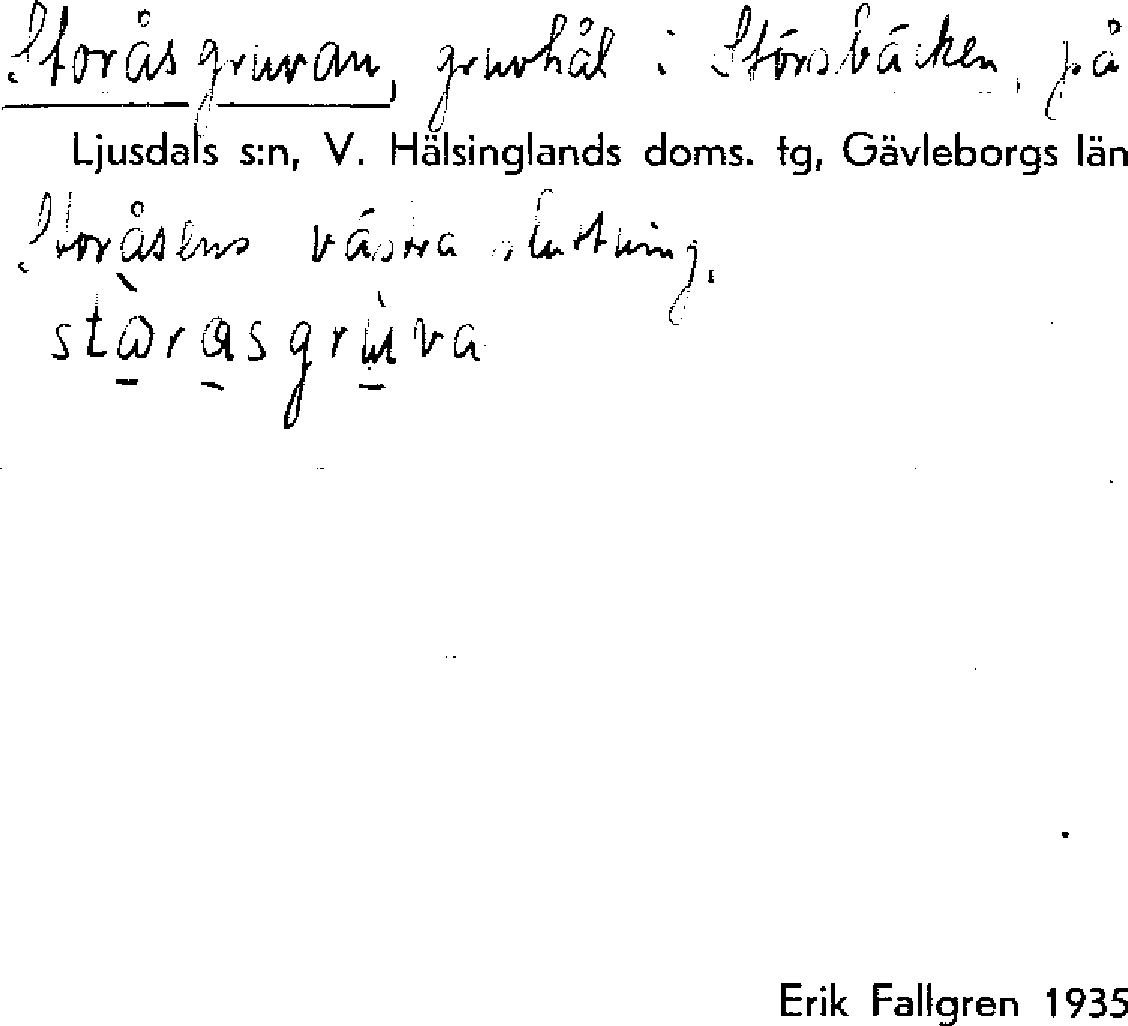 Storåsgruvan, gruvhål i Störsbäcken, på
Ljusdals s:n, V. Hälsinglands doms. tg, Gävleborgs län
Storåsens västra sluttning.
Erik Fallgren 1935